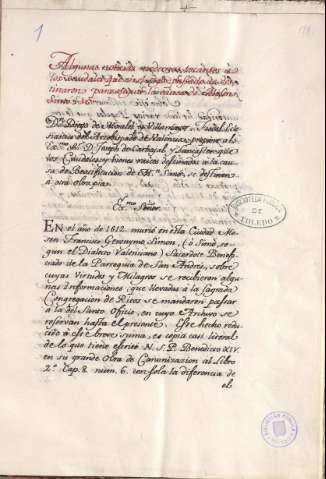 1
Algunas noticias
los caudales
tinaron para seguir la causa de
Dn. Diego de Morales y Villamayor, Fiscal Ecle-
siastico del Arzobispado de Valencia, propone al
Exmo. Sr. D. Joseph de Carbajal y Lancaster, que
los Caudales, y bienes raices destinados a la cau-
sa de Beatificacion de Mn. Simó, se destinen
à otra obra pia.
Exmo. Señor.
EN el año de 1612. murió en esta Ciudad Mo-
sen Francisco Geronymo Simon, (ò Simó, se-
gun el Dialecto Valenciano) Sacerdote Benefi-
ciado de la Parroquia de San Andrés, sobre
cuyas Virtudes y Milagros se recivieron algu-
nas Informaciones, que llevadas à la Sagrada
Congregacion de Ritos se mandaron passar
à la del Santo Oficio, en cuyo Archivo se
reservan hasta el presente. Este hecho redu-
cido à esta breve suma, es copia casi literal
de lo que tiene escrito N. S. P. Benedicto XIV.
en su grande Obra de Canonizacion al Libro
2.º Cap. 8. num. 6. con sola la diferencia de
el
BIBLIOTECA PUBLICA
DE
TOLEDO